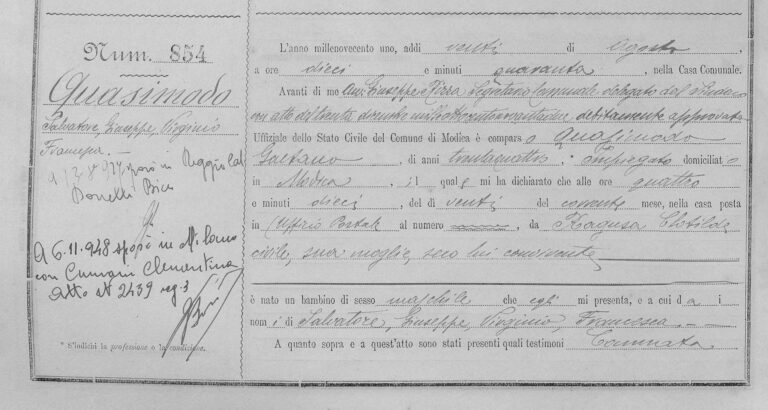 Num. 854
Quasimodo
Salvatore, Giuseppe, Virginio
Francesca. —
sposò in Reggio Cal
Donetti Bice
A 6.11.948 sposò in Milano
con Cumani Clementina
Atto N 2439 reg. 3
* S'indichi la professione o la condizione.
L'anno millenovecento uno, addì venti di Agosto
a ore dieci e minuti quaranta, nella Casa Comunale.
Avanti di me Giuseppe Segretario Comunale delegato dal Sindaco
con atto del trenta debitamente approvato
Uffiziale dello Stato Civile del Comune di Modica è comparso Quasimodo
Gaetano, di anni trentaquattro, impiegato domiciliato
in Modica, il quale mi ha dichiarato che alle ore quattro
e minuti dieci, del dì venti del corrente mese, nella casa posta
in Uffizio Postale al numero, da Ragusa Clotilde
civile, sua moglie, seco lui convivente,
è nato un bambino di sesso maschile che egli mi presenta, e a cui dà i
nomi di Salvatore, Giuseppe, Virginio, Francesca. — —
A quanto sopra e a quest'atto sono stati presenti quali testimoni Cannata